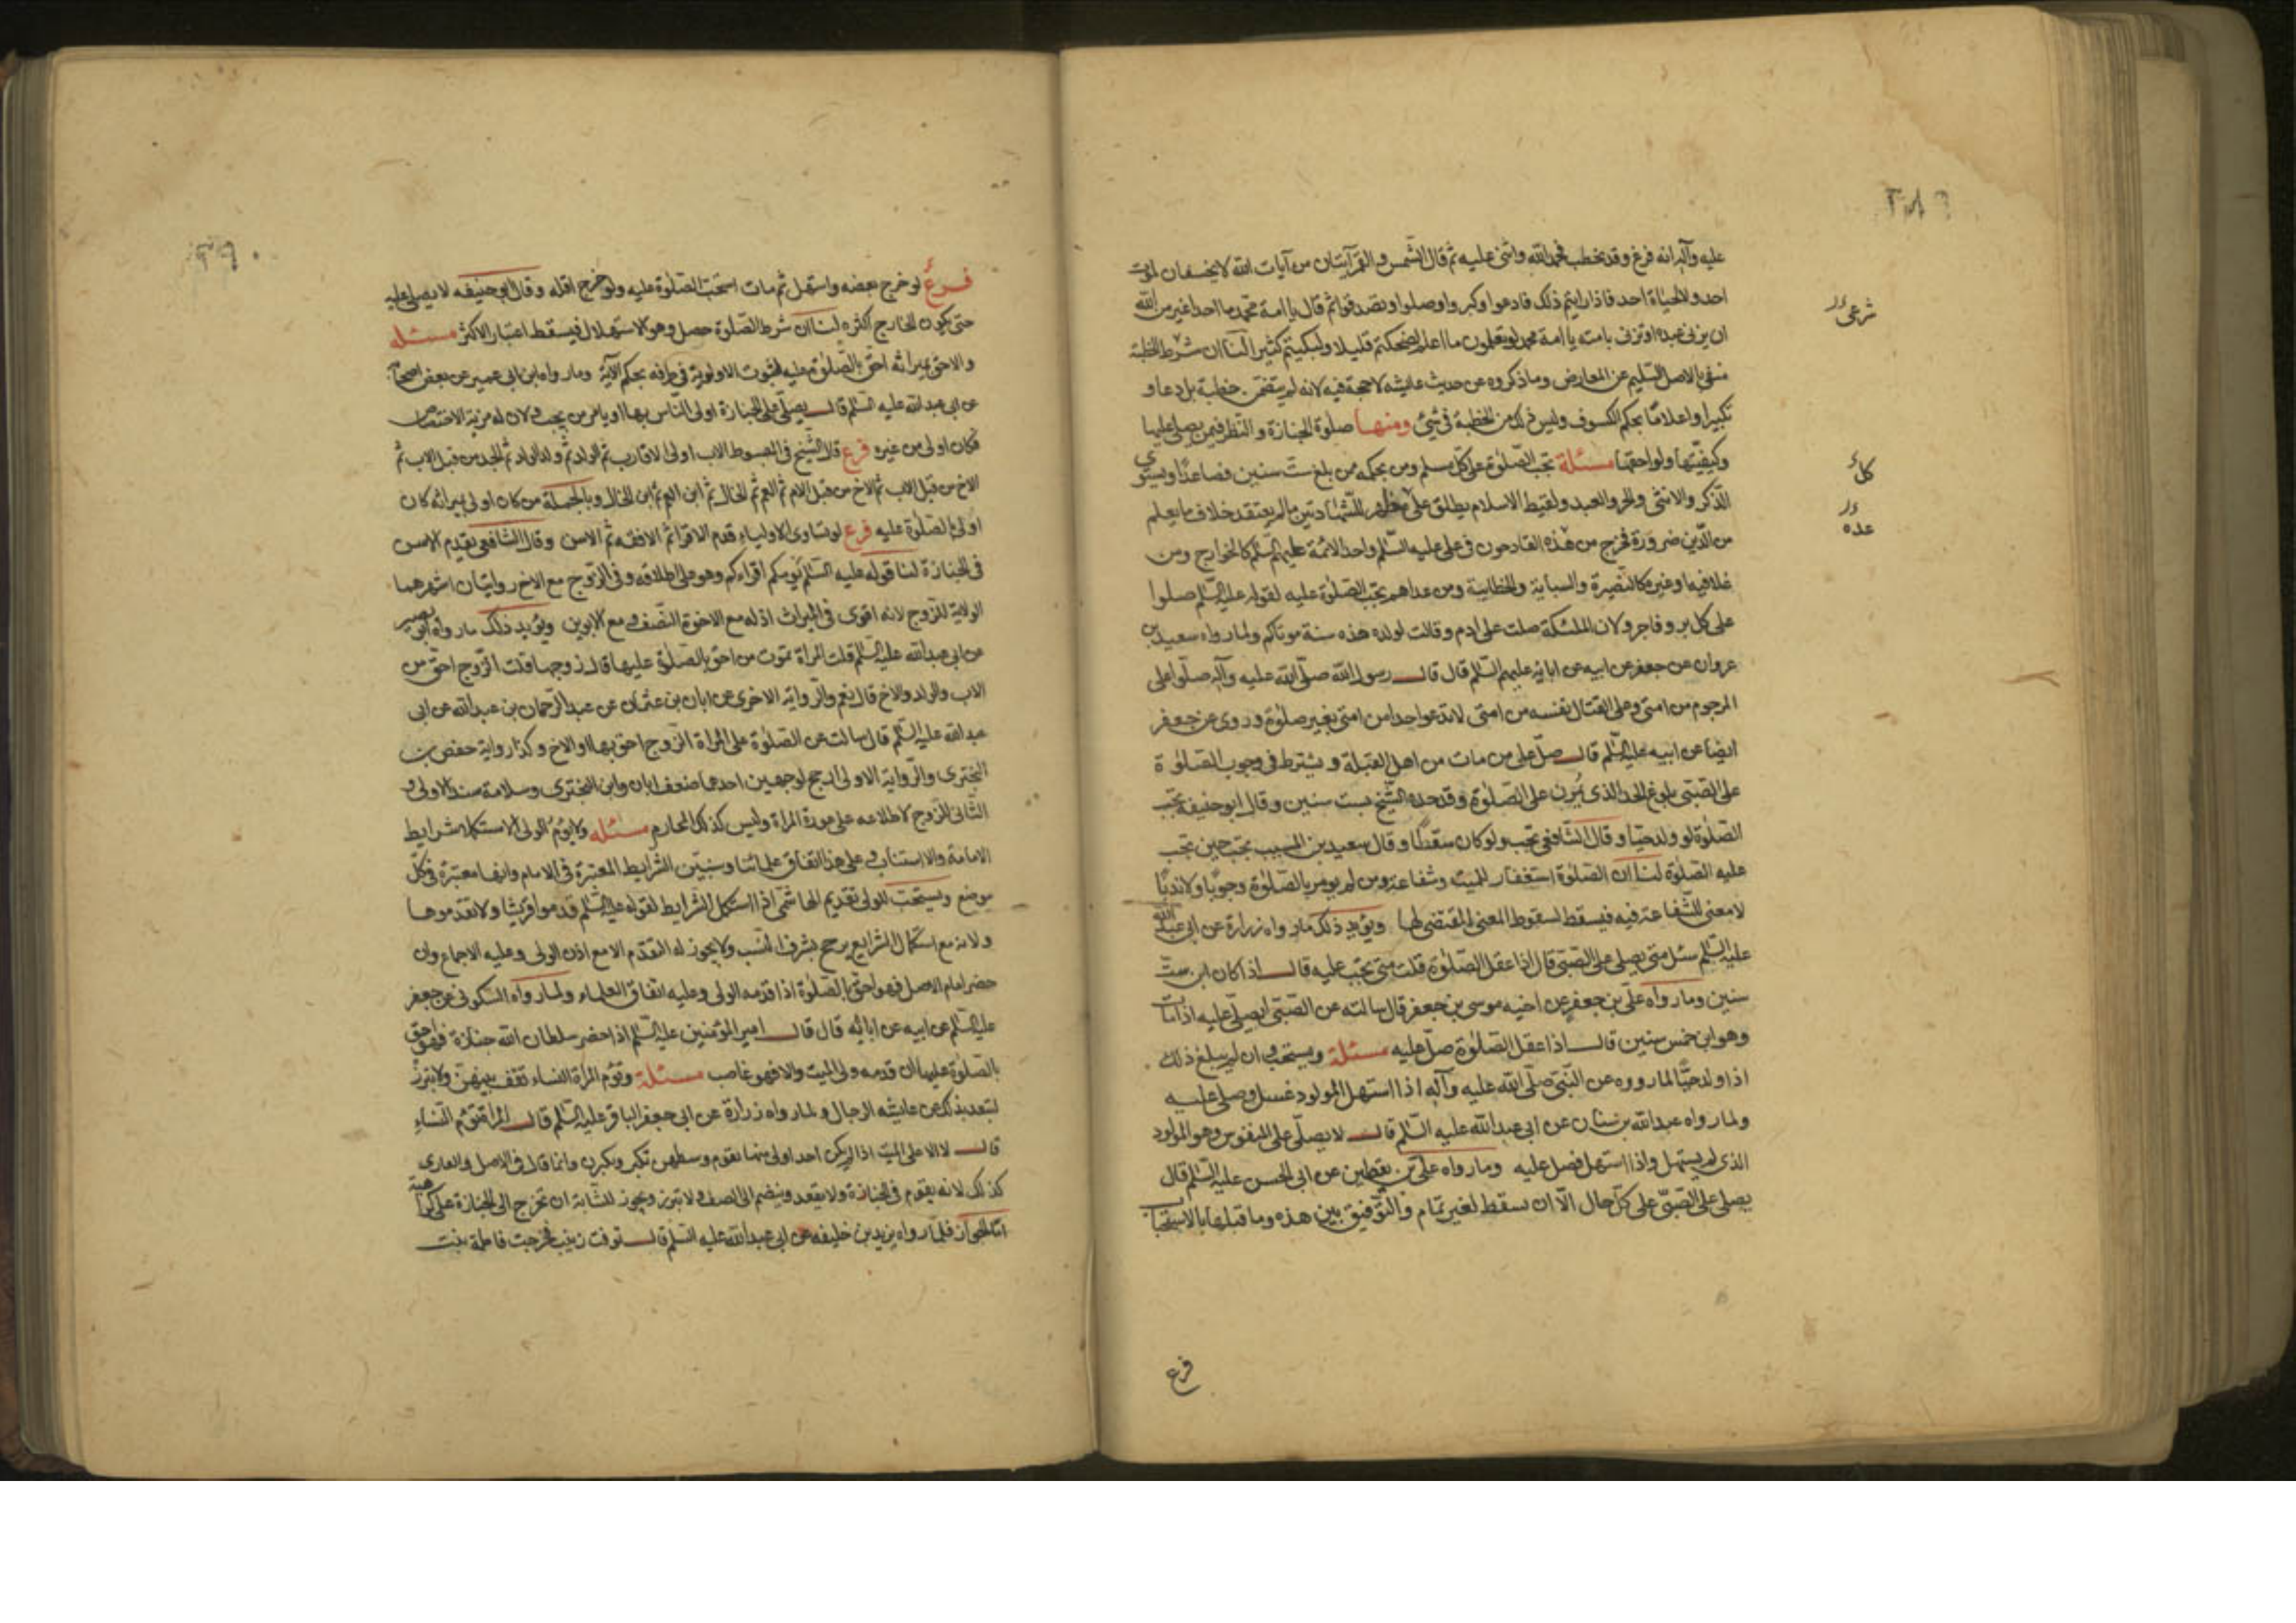 عليه وآله انه فرغ وقد خطب فحمد الله واثنى عليه ثم قال الشمس والقمر آيتان من آيات الله لا يخسفان لموت
احد ولا لحياة احد فاذا رايتم ذلك فادعوا وكبروا وصلوا وتصدقوا ثم قال يا امة محمد ما احد اغير من الله
ان يزنى عبده او تزنى بامته يا امة محمد لو تعلمون ما اعلم لضحكتم قليلا ولبكيتم كثيرا لنا ان شرط الخطبة
منفى بالاصل السليم عن المعارض وما ذكروه عن حديث عايشه لا حجة فيه لانه لم يتضمن خطبة بل دعا و
تكبيرا واعلاما بحكم الكسوف وليس ذلك من الخطبة فى شئ ومنها صلوة الجنازة والنظر فيمن يصلى عليها
وكيفيتها ولواحقها مسئلة تجب الصلوة على كل مسلم ومن بحكمه ممن بلغ ست سنين فصاعدا ويستوي
الذكر والانثى والحر والعبد ولقيط الاسلام يطلق على مظهر للشهادتين ما لم يعتقد خلاف ما يعلم
من الدين ضرورة فخرج من هذه القادحون فى على عليه السلم واحد الائمة عليهم السلم كالخوارج ومن
غلا فيه او غيره كالنصيرة والسباية والخطابية ومن عداهم تجب الصلوة عليه لقوله عليه السلم صلوا
على كل بر وفاجر ولان الملئكة صلت على ادم وقالت لولده هذه سنة موتاكم ولما رواه سعيد بن
غروان عن جعفر عن ابيه عن ابائه عليهم السلم قال قال رسول الله صلى الله عليه وآله صلوا على
المرجوم من امتى وعلى القتال نفسه من امتى لا تدعوا احدا من امتى بغير صلوة وروى عن جعفر
ايضا عن ابيه عليه السلم قال صل على من مات من اهل القبلة ويشترط فى وجوب الصلوة
على الصبى بلوغ الحد الذى يمرن على الصلوة وقد حده الشيخ بست سنين وقال ابو حنيفة تجب
الصلوة لو ولد حيا وقال الشافعى تجب ولو كان سقطا وقال سعيد بن المسيب تجب حين تجب
عليه الصلوة لنا ان الصلوة استغفار للميت وشفاعة ومن لم يومر بالصلوة وجوبا ولا ندبا
لا معنى للشفاعة فيه فيسقط لسقوط المعنى المقتضى لها ويؤيد ذلك ما رواه زرارة عن ابى عبد الله
عليه السلم سئل متى يصلى على الصبى قال اذا عقل الصلوة قلت متى تجب عليه قال اذا كان ابن ست
سنين وما رواه على بن جعفر عن اخيه موسى بن جعفر قال سالته عن الصبى ايصلى عليه اذا مات
وهو ابن خمس سنين قال اذا عقل الصلوة صل عليه مسئلة ويستحب وان لم يبلغ ذلك
اذا ولد حيا لما رووه عن النبى صلى الله عليه وآله اذا استهل المولود غسل وصلى عليه
ولما رواه عبد الله بن سنان عن ابى عبد الله عليه السلم قال لا يصلى على المنفوس وهو المولود
الذى لم يستهل واذا استهل فصل عليه وما رواه على بن يقطين عن ابى الحسن عليه السلم قال
يصلى على الصبى على كل حال الا ان يسقط لغير تمام والتوفيق بين هذه وما قبلها بالاستحباب
فرع
شرعى
كل
عده
فرع لو خرج بعضه واستهل ثم مات استحب الصلوة عليه ولو خرج اقله وقال ابو حنيفه لا يصلى عليه
حتى يكون الخارج اكثره لنا ان شرط الصلوة حصل وهو الاستهلال فيسقط اعتبار الاكثر مسئله
والاحق بميراثه احق بالصلوة عليه لثبوت الاولوية فى طرفه بحكم الآية وما رواه ابن ابى عمير عن بعض اصحابنا
عن ابى عبد الله عليه السلم قال يصلى على الجنازة اولى الناس بها او يامر من يحب ولان له مزية الاختصاص
فكان اولى من غيره فرع قال الشيخ فى المبسوط الاب اولى الاقارب ثم الولد ثم ولد الولد ثم الجد من قبل الاب ثم
الاخ من قبل الاب ثم الاخ من قبل الام ثم العم ثم الخال ثم ابن العم ثم ابن الخال وبالجملة من كان اولى بميراثه كان
اولى بالصلوة عليه فرع لو تساوى الاولياء قدم الاقرا ثم الافقه ثم الاسن وقال الشافعى يقدم الاسن
فى الجنازة لنا قوله عليه السلم يؤمكم اقراءكم وهو على اطلاقه وفى الزوج مع الاخ روايتان اشهرهما
الولاية للزوج لانه اقوى فى الميراث اذ له مع الاخوة النصف ومع الابوين ويؤيد ذلك ما رواه ابو بصير
عن ابى عبد الله عليه السلم قلت المراة تموت من احق بالصلوة عليها قال زوجها قلت الزوج احق من
الاب والولد والاخ قال نعم والرواية الاخرى عن ابان بن عثمان عن عبد الرحمان بن عبد الله عن ابى
عبد الله عليه السلم قال سالت عن الصلوة على المراة الزوج احق بها او الاخ وكذا رواية حفص بن
البخترى والرواية الاولى ارجح لوجهين احدهما ضعف ابان وابن البخترى وسلامة سند الاولى و
الثانى الزوج لاطلاعه على عورة المراة وليس كذلك المحارم مسئله ولا يؤم الولى الا مع استكمال شرايط
الامامة والا استناب وعلى هذا اتفاق علمائنا وسنبين الشرايط المعتبرة فى الامام وانها معتبرة فى كل
موضع ويستحب للولى تقديم الهاشمى اذا استكمل الشرايط لقوله عليه السلم قدموا قريشا ولا تقدموها
ولانه مع استكمال الشرايع يرجح بشرف النسب ولا يجوز له التقدم الا مع اذن الولى وعليه الاجماع وان
حضر امام الاصل فهو احق بالصلوة اذا قدمه الولى وعليه اتفاق العلماء ولما رواه السكونى عن جعفر
عليه السلم عن ابيه عن ابائه قال قال امير المؤمنين عليه السلم اذا حضر سلطان الله جنازة فهو احق
بالصلوة عليها ان قدمه ولى الميت والا فهو غاصب مسئلة وتؤم المراة النساء تقف بينهن ولا تبرز
لتعديد ذلك عن عايشه الرجال ولما رواه زرارة عن ابى جعفر الباقر عليه السلم قال المراة تؤم النساء
قال لا الا على الميت اذا لم يكن احد اولى منها تقوم وسطهن تكبر ويكبرن وانما قال فى الاصل والعارى
كذلك لانه يقوم فى الجنازة ولا يقعد وينضم الى الصف ولا تبرز ويجوز للشابة ان تخرج الى الجنازة على كراهية
اما الجواز فلما رواه يزيد بن خليفه عن ابى عبد الله عليه السلم قال توفت زينب فخرجت فاطمة بنت